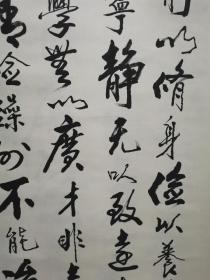 以脩身儉以養
寧静无以致遠
學無以廣才非
險躁則不能治